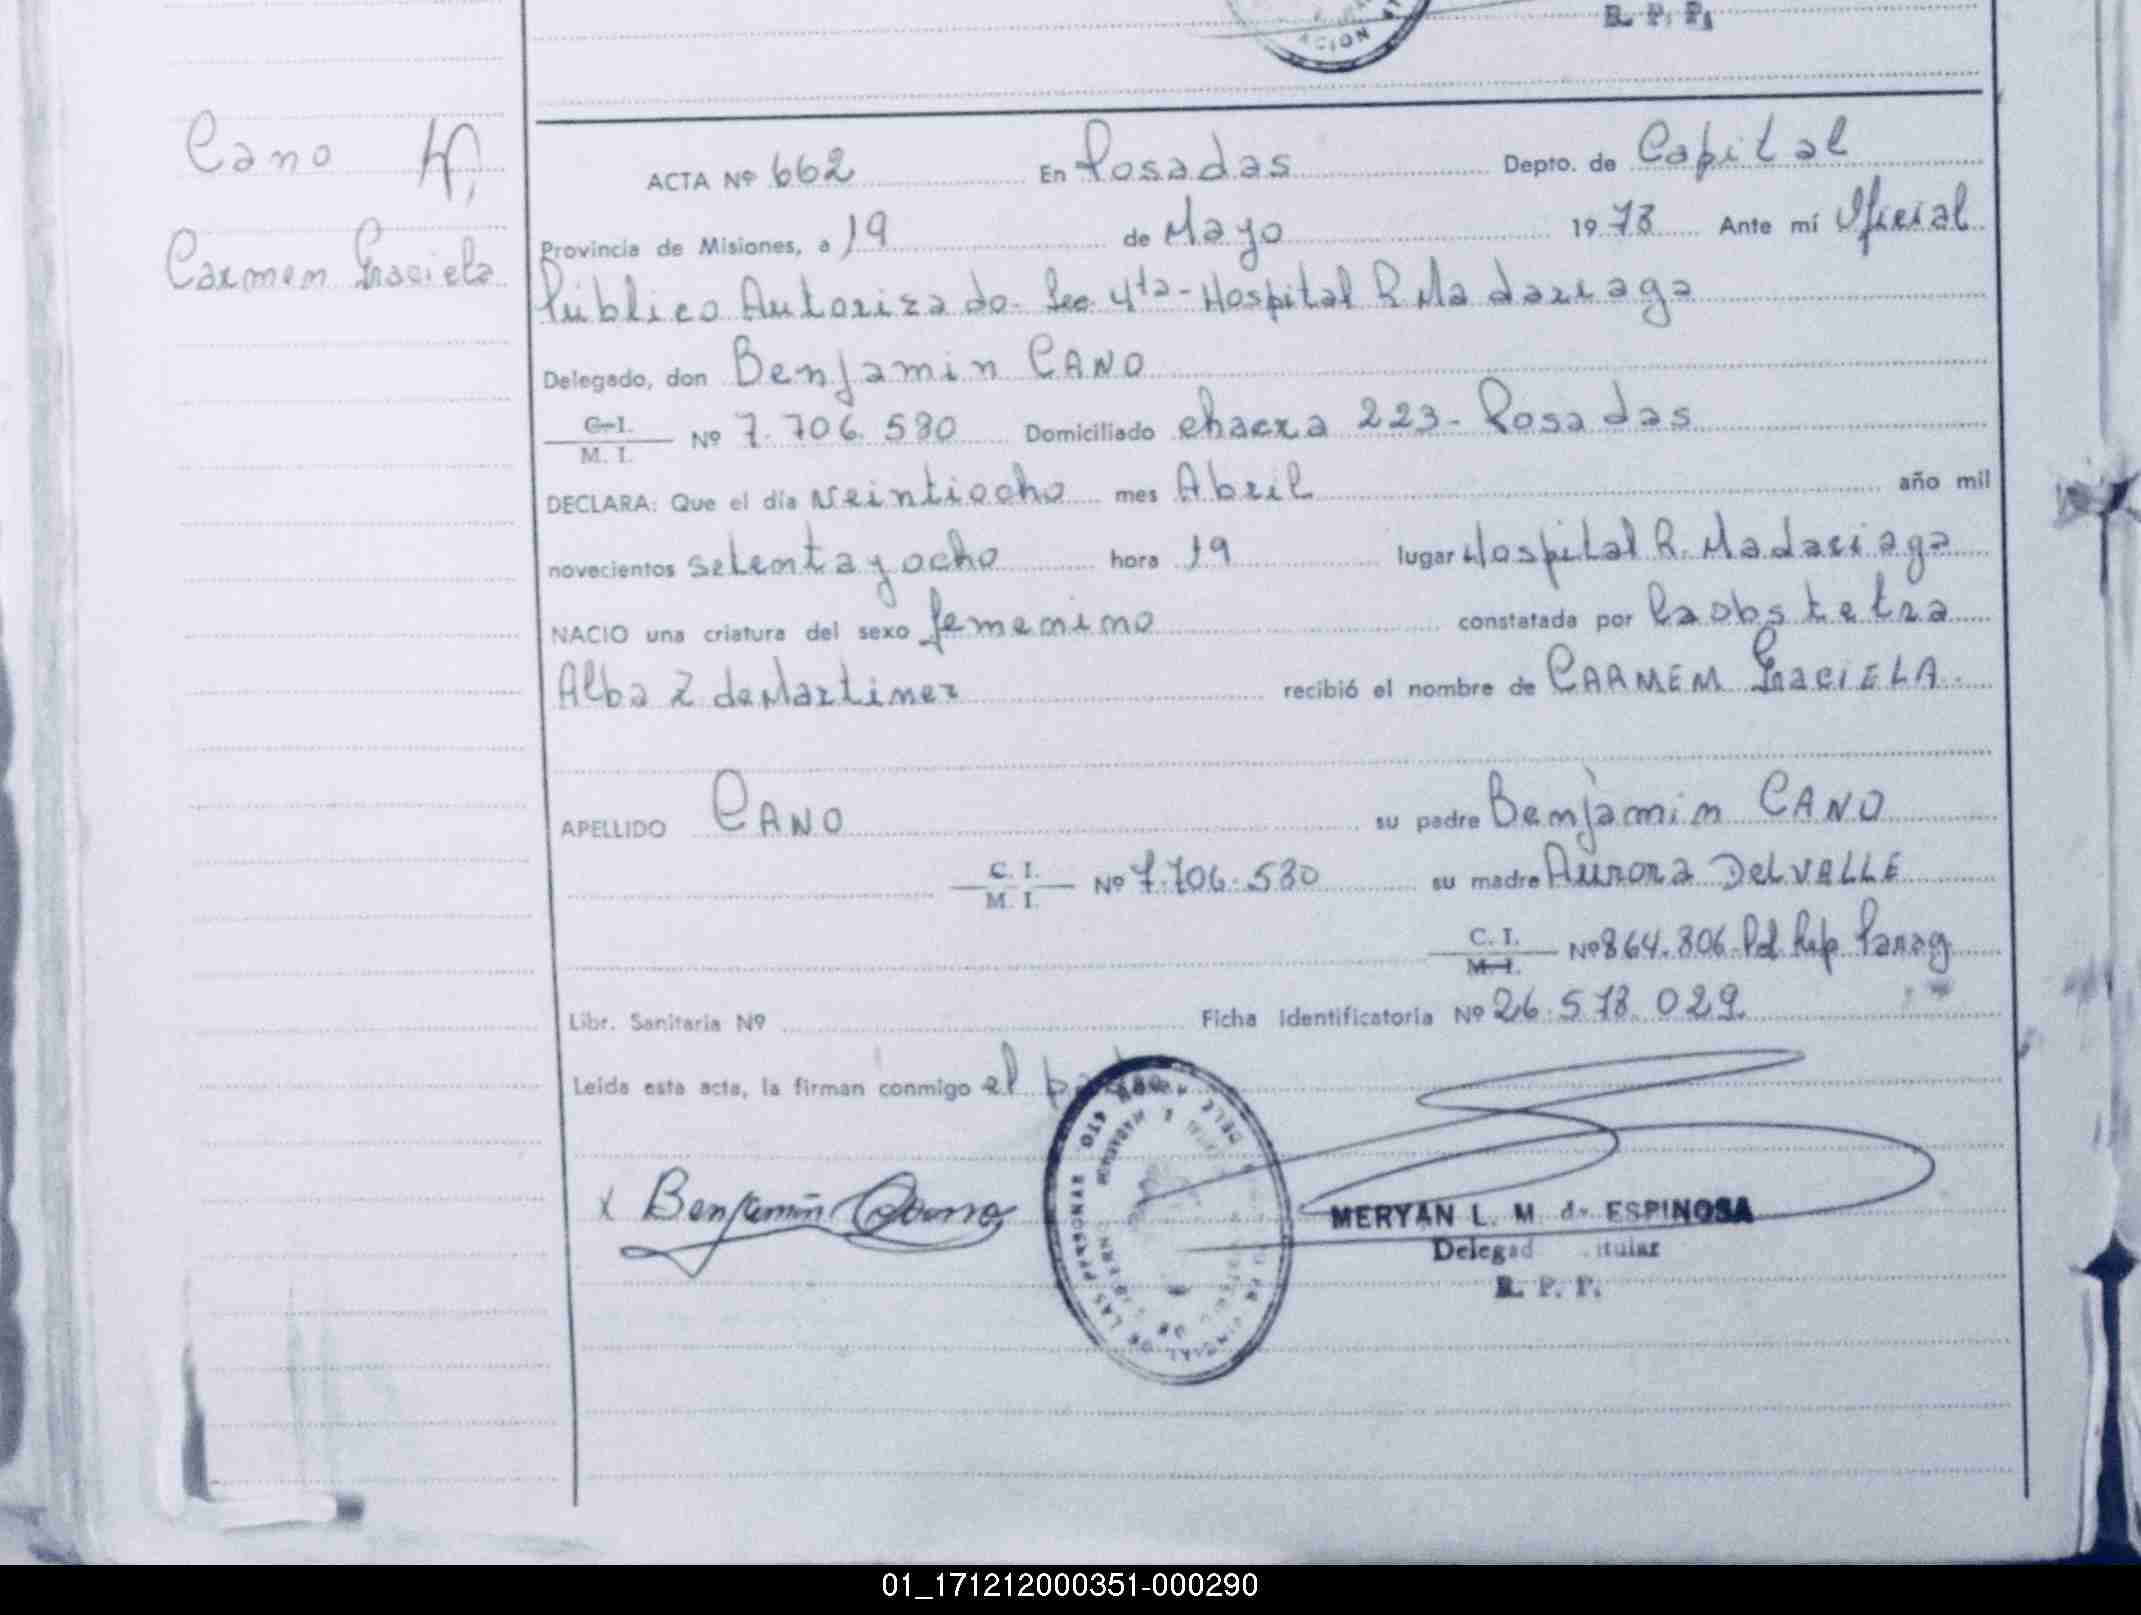 R. P. P.
ACION
Cano
Carmen Graciela
ACTA Nº 662 En Posadas Depto. de Capital
Provincia de Misiones, a 19 de Mayo 1978 Ante mí Oficial
Público Autorizado- Sec 4ta- Hospital R Madariaga
Delegado, don Benjamin CANO
C.I. M. I. Nº 7.706.530 Domiciliado chacra 223- Posadas
DECLARA: Que el día veintiocho mes Abril año mil
novecientos setenta y ocho hora 19 lugar Hospital R. Madariaga
NACIO una criatura del sexo femenino constatada por la obstetra
Alba Z de Martinez recibió el nombre de CARMEM GraciELA
APELLIDO CANO su padre Benjamin CANO
C. I. M. I. Nº 7.706.530 su madre Aurora DelVALLE
C. I. M.I. Nº 864.806 Pol Rep Parag
Libr. Sanitaria Nº Ficha Identificatoria Nº 26.578.029
Leída esta acta, la firman conmigo el
x Benjamin Cano
MERYAN L. M. de ESPINOSA
R. P. P.
01_171212000351-000290